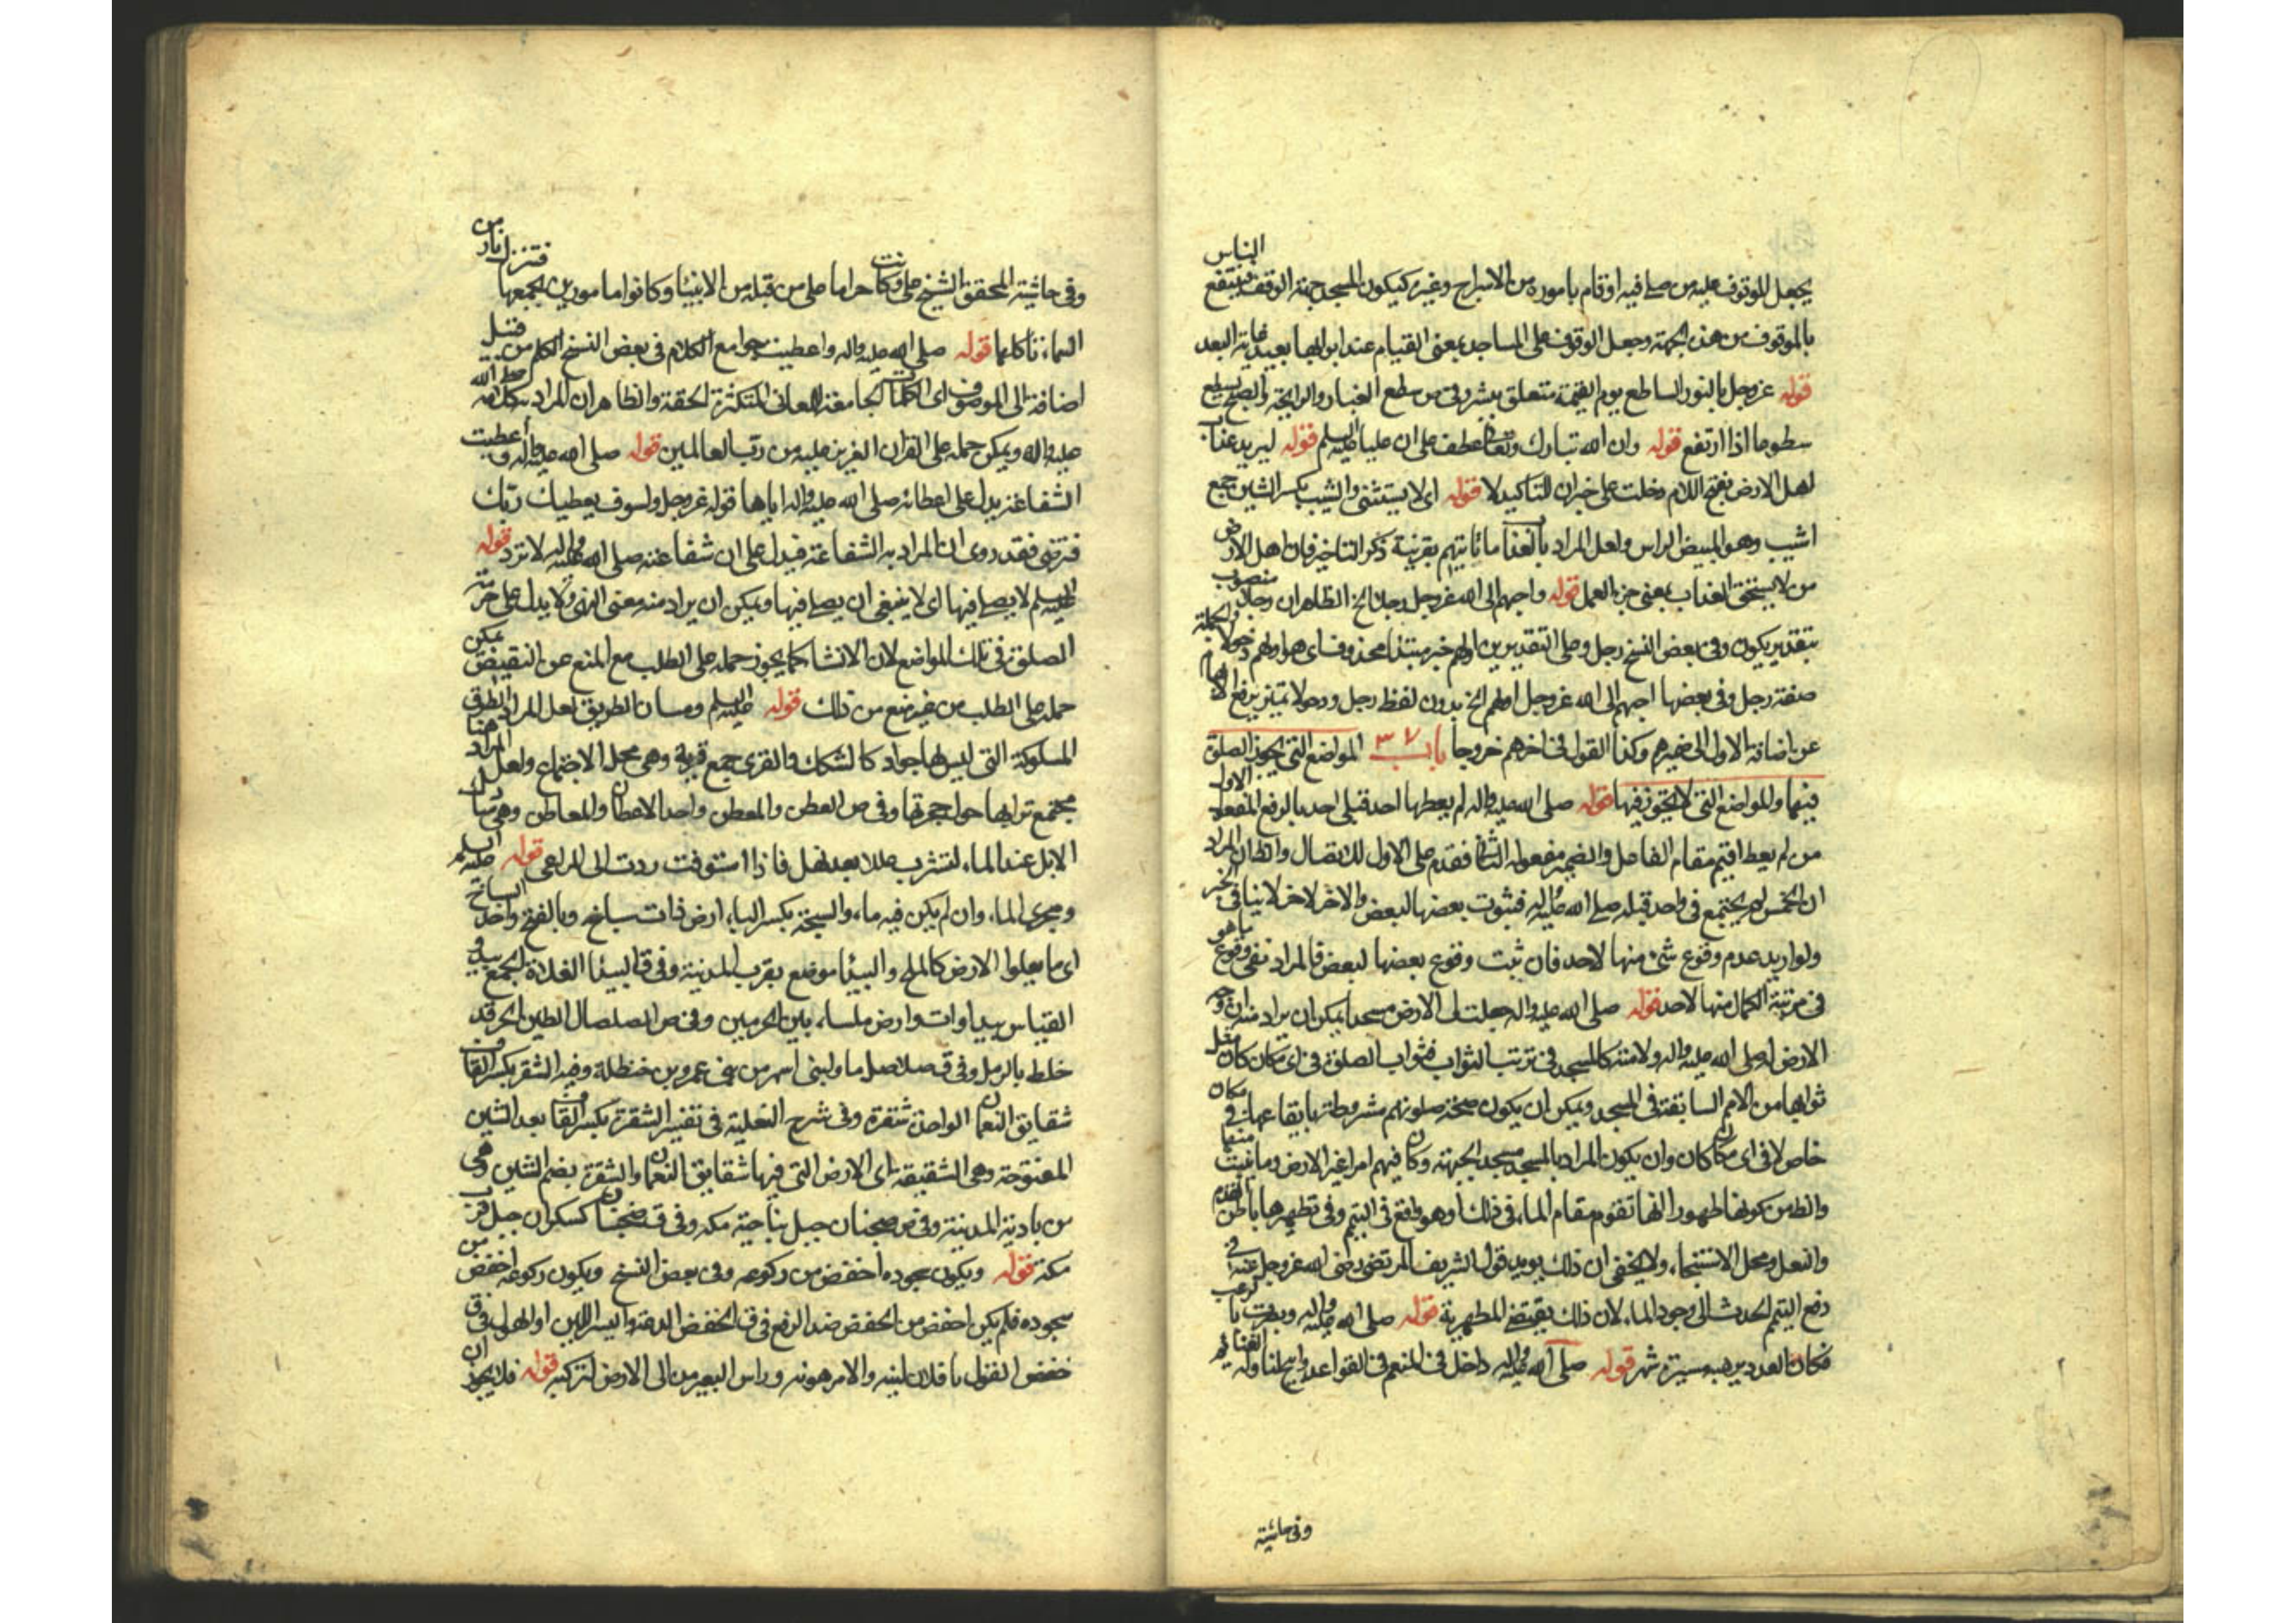 يجعل للوقوف عليه من صلى فيه او قام باموره من الاسراج وغيره كيكون المسجد جهة الوقف فينتفع الناس
بالموقوف من هذه الجهة وجعل الوقوف على المساجد بمعنى القيام عند ابوابها بعيد غاية البعد
قوله عز وجل بالنور الساطع يوم القيمة متعلق ببشر وفي ص سطع الغبار والرايحة والصبح يسطع
سطوعا اذا ارتفع قوله وان الله تبارك وتعالى عطف على ان عليا عليه السلم قوله ليريد عذاب
لهل الارض بفتح اللام دخلت على خبر ان للتاكيد لا قوله اى لا يستثنى والشيب بكسر الشين جمع
اشيب وهو المبيض الراس ولعل المراد بالعذاب ما ياتيهم بقرينة ذكر التاخير فان اهل الارض
من لا يستحق العذاب بمعنى جزاء العمل قوله واحبهم الى الله عز وجل رجلا الخ الظاهر ان رجلا منصوب
بتقدير يكون وفى بعض النسخ رجل وعلى التقديرين اولهم خبر مبتدا محذوف اى هو اولهم دخولا والجملة
صفة رجل وفى بعضها احبهم الى الله عز وجل اولهم الخ بدون لفظ رجل ودخولا تميز يرفع الابهام
عن اضافة الاول الى ضميرهم وكذا القول فى اخرهم خروجا باب ٣٧ المواضع التى يجوز الصلوة
فيها والمواضع التى لا يجوز فيها قوله صلى الله عليه واله لم يعطها احد قبلى احد بالرفع المفعول الاول
من لم يعط اقيم مقام الفاعل والضمير مفعوله الثانى فقدم على الاول للاتصال والظ ان المراد
ان الخمس لم يجتمع فى واحد قبله صلى الله عليه واله فثبوت بعضها لبعض والاخر لاخر لا ينافى الخبر
ولو اريد عدم وقوع شئ منها لاحد فان ثبت وقوع بعضها لبعض فالمراد نفى وقوع ما هو
فى مرتبة الكمال منها لاحد قوله صلى الله عليه واله جعلت لى الارض مسجدا يمكن ان يراد منه ان
الارض له صلى الله عليه واله ولامته كالمسجد فى ترتب الثواب فثواب الصلوة فى اى مكان كان مثل
ثوابها من الامم السابقة فى المسجد ويمكن ان يكون صحة صلوتهم مشروطة بايقاعها فى مكان
خاص لا فى اى مكان كان وان يكون المراد بالمسجد مسجد الجبهة وكان فيهم امرا غير الارض وما ينبت منها
والظ من كونها طهورا انها تقوم مقام الماء فى ذلك وهو واقع فى التيمم وفى تطهيرها باطن القدم
والنعل ومحل الاستنجاء ولا يخفى ان ذلك يويد قول الشريف المرتضى رضى الله عز وجل عنه فى
رفع التيمم الحدث الى وجود الماء لان ذلك يقتضى المطهرية قوله صلى الله عليه واله ونصرت بالرعب
فكان العدو يرهبه مسيرة شهر قوله صلى الله عليه واله داخل فى المنعم فى القواعد وابيح لنا وله الغنايم
وفى حاشية
وفى حاشية المحقق الشيخ على وكانت حراما على من قبله من الانبياء وكانوا مامورين بجمعها فتنزل نار من
السماء تاكلها قوله صلى الله عليه واله واعطيت جوامع الكلام فى بعض النسخ الكلم من قبيل
اضافة الى الموصوف اى الكلمات الجامعة للمعانى المتكثرة الحقة والظاهر ان المراد كلامه صلى الله
عليه واله ويمكن حمله على القران العزيز عليه من رب العالمين قوله صلى الله عليه واله واعطيت
الشفاعة يدل على اعطائه صلى الله عليه واله اياها قوله عز وجل ولسوف يعطيك ربك
فترضى فقد روى ان المراد به الشفاعة فيدل على ان شفاعته صلى الله عليه واله لا ترد قوله
عليه السلم لا يصلى فيها اى لا ينبغى ان يصلى فيها ويمكن ان يراد منه معنى النهى ولا يدل على حرمة
الصلوة فى تلك المواضع لان الانشاء كما يجوز حمله على الطلب مع المنع عن النقيض يمكن
حمله على الطلب من غير منع من ذلك قوله عليه السلم ومسان الطريق لعل المراد الطرق
المسلوكة التى ليس لها جواد كالسكك والقرى جمع قرية وهى محل الاجتماع ولعل المراد هنا
مجتمع ترابها حول جحرتها وفى ص العطن والمعطن واحد الاعطان والمعاطن وهى مبارك
الابل عند الماء لتشرب عللا بعد نهل فاذا استوفت ردت الى المراعى قوله عليه السلم
ومجرى الماء وان لم يكن فيه ماء والسبخة بكسر الباء ارض ذات سباخ وبالفتح واحد السباخ
اى ما يعلوا الارض كالملح والبيداء موضع بقرب المدينة وفى ق البيداء الفلاة الجمع بيد و
القياس بيداوات وارض ملساء بين الحرمين وفى ص الصلصال الطين الحر قد
خلط بالرمل وفى ق صلاصل ماء لبنى اسمر من بنى عمرو بن حنظلة وفيه الشقر بكسر القاف
شقايق النعمان الواحدة شقرة وفى شرح النفلية فى تفسير الشقرة بكسر القاف بعد الشين
المفتوحة وهى الشقيقة اى الارض التى فيها شقايق النعمان والشقرة بضم الشين وهى
من بادية المدينة وفى ص ضجنان جبل بناحية مكه وفى ق ضجنان كسكران جبل قرب
مكة قوله ويكون سجوده اخفض من ركوعه وفى بعض النسخ ويكون ركوعه اخفض من
سجوده فلم يكن اخفض من الخفض ضد الرفع فى ق الخفض الدعة والسير اللين اولها فى ق
خفض القول يا فلان لينه والامر هونه وراس البعير مده الى الارض لتركبه قوله فلا يجوز ان